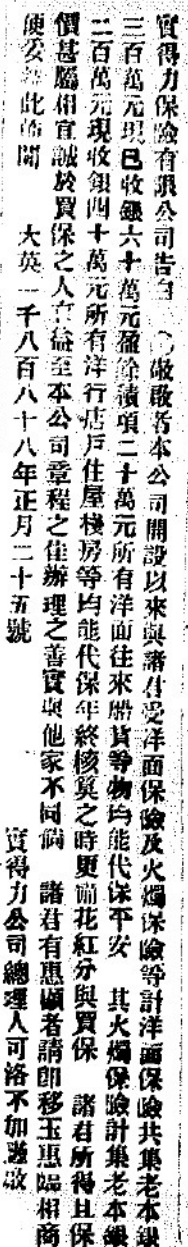 實得力保險有限公司告白 敬啟者本公司開設以來與諸君受洋面保險及火燭保險等計洋面保險共集老本銀
三百萬元現已收銀六十萬元盈餘積項二十萬元所有洋面往來船貨等物均能代保平安 其火燭保險計集老本銀
二百萬元現收銀四十萬元所有洋行店戶住屋棧房等均能代保年終核算之時更備花紅分與買保 諸君所得且保
價甚屬相宜誠於買保之人有益至本公司章程之佳辦理之善實與他家不同倘 諸君有惠顧者請即移玉惠臨相商
便妥 此佈聞 大英一千八百八十八年正月二十五號 實得力公司總理人可洛不加 啟